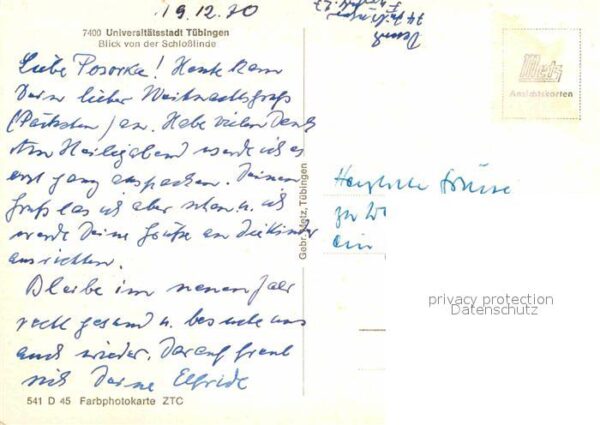 19.12.70
7400 Universitätsstadt Tübingen
Blick von der Schloßlinde
Liebe Posorka! Heute kam
Dein lieber Weihnachtsgruß
(Päckchen) an. Habe vielen Dank
Am Heiligabend werde ich es
erst ganz auspacken. Deinen
Gruß las ich aber schon u. ich
werde Deine Grüße an die Kinder
ausrichten.
Bleibe im neuen Jahr
recht gesund u. besuche uns
auch wieder. Darauf freut
sich Deine Elfride
541 D 45 Farbphotokarte ZTC
Gebr. Metz, Tübingen
Metz
Ansichtskarten
Herzliche Grüsse
zu
ein
privacy protection
Datenschutz